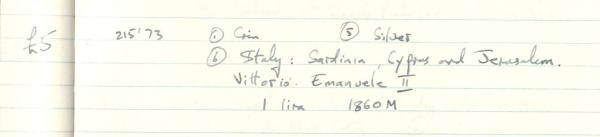 £5 215'73 ① Coin ⑤ Silver
⑥ Italy: Sardinia, Cyprus and Jerusalem.
Vittorio Emanuele II
1 lira 1860 M